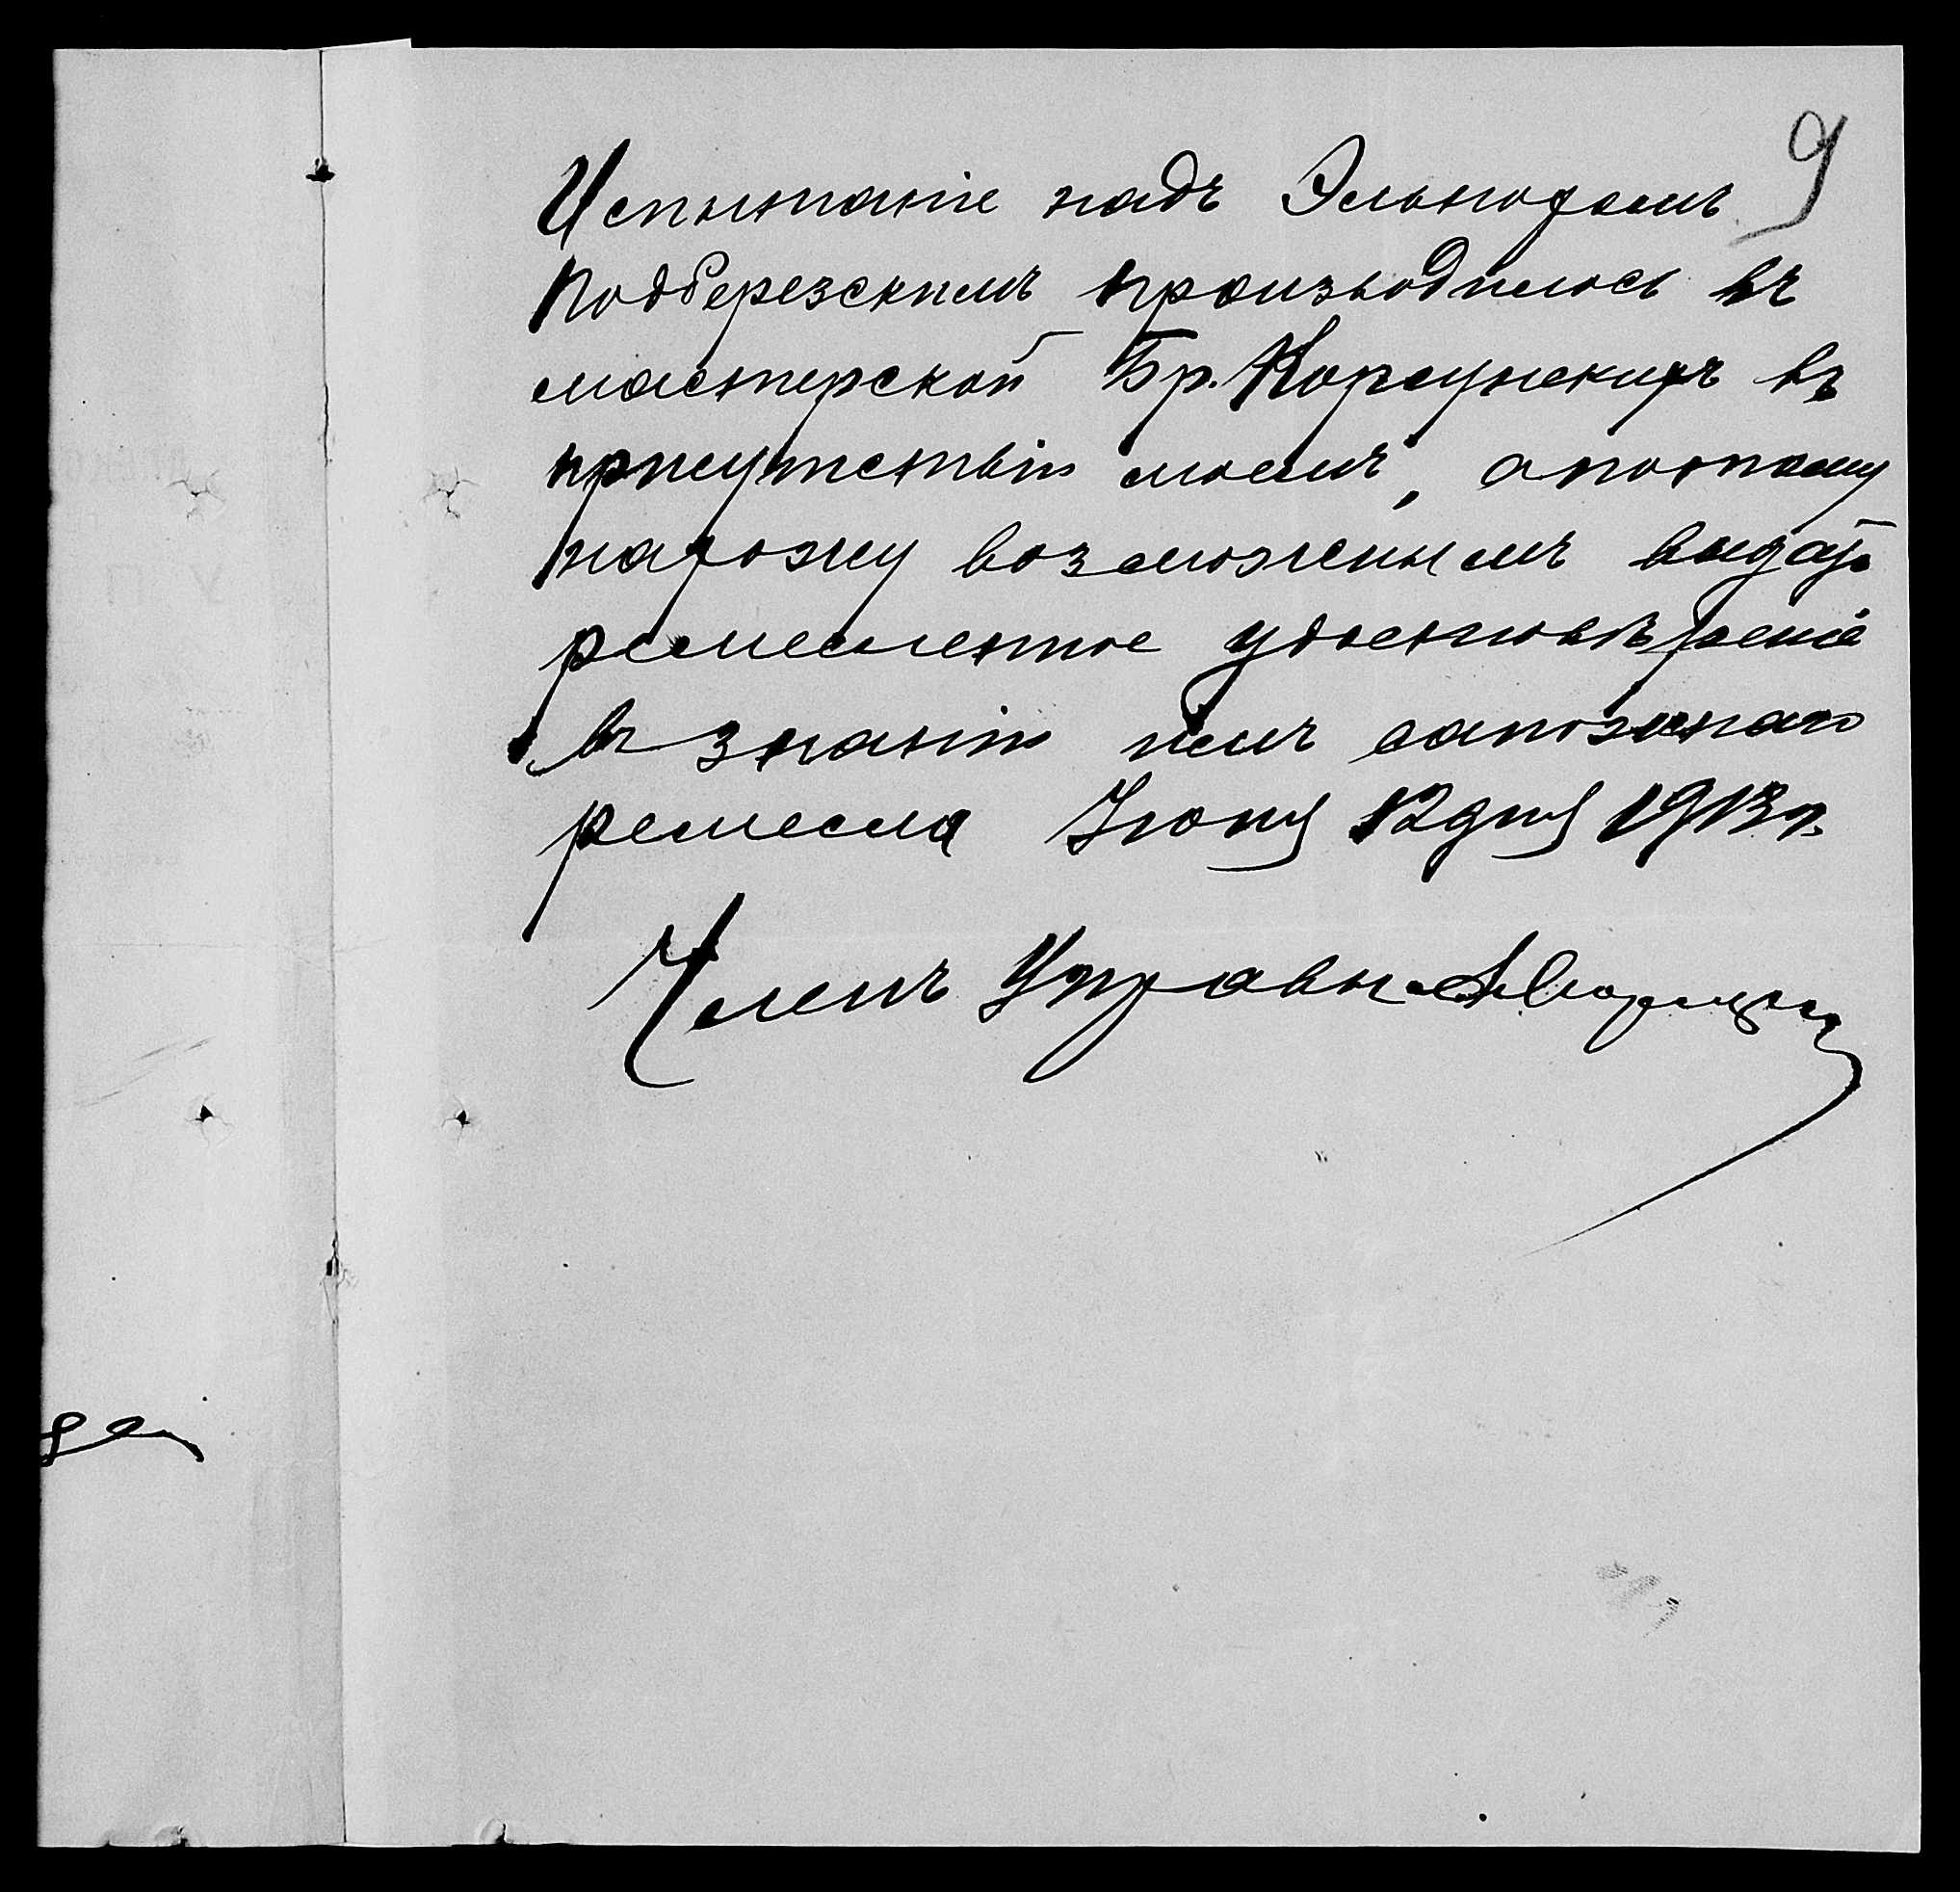 9
Испытаніе надъ Эльнохомъ
Подберезскимъ производилось въ
мастерской Бр. Корсунскихъ въ
присутствіи моемъ, а потому
нахожу возможнымъ выдать
ремесленное удостовѣреніе
въ знаніи имъ сапожнаго
ремесла Іюня 12 дня 1913 г.
Членъ Управы